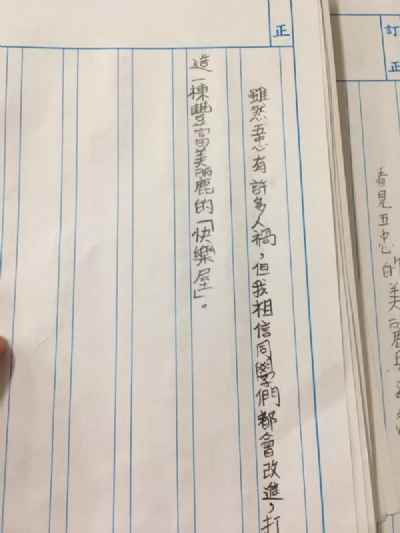 正
雖然五心有許多人禍,但我相信同學們都會改進,打
造一棟豐富美麗的「快樂屋」。
訂正
看見五中心的美麗與